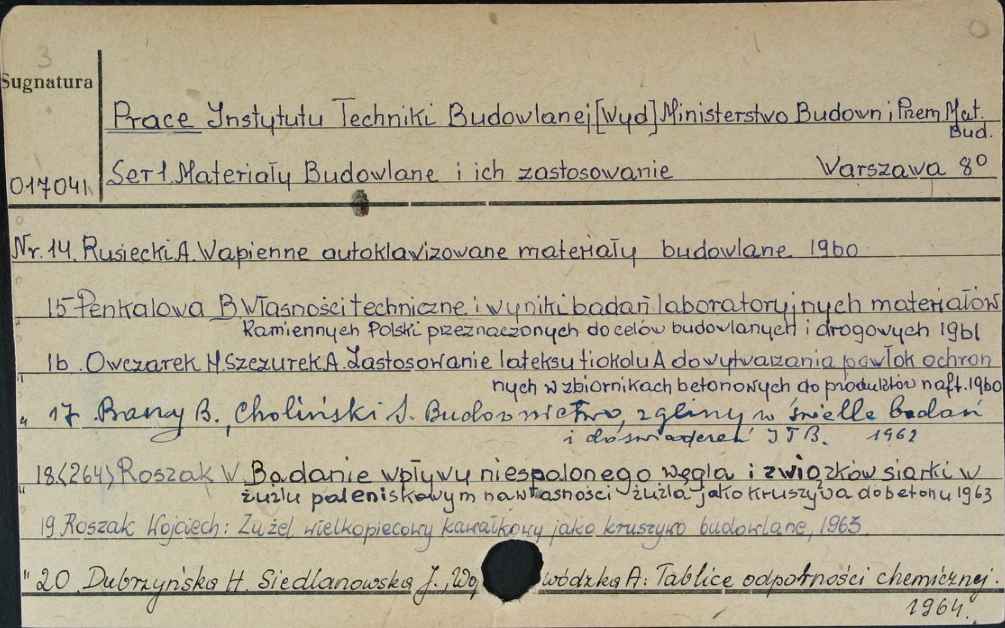 3
Sygnatura
Prace Instytutu Techniki Budowlanej [Wyd] Ministerstwo Budown i Przem Mat.
Bud.
017041 Ser 1 Materiały Budowlane i ich zastosowanie Warszawa 8°
Nr. 14. Rusiecki A. Wapienne autoklawizowane materiały budowlane 1960
15 Penkalowa B Własności techniczne i wyniki badań laboratoryjnych materiałów
Kamiennych Polski przeznaczonych do celów budowlanych i drogowych 1961
" 16. Owczarek M Szczurek A. Zastosowanie lateksu tiokolu A do wytwarzania powłok ochron
nych w zbiornikach betonowych do produktów naft. 1960
" 17 B., Choliński J. Budownictwo z gliny w świetle badań
i doświadczeń ITB. 1962
" 18.(264) Roszak W Badanie wpływu niespalonego węgla i związków siarki w
żużlu paleniskowym na własności żużla jako kruszywa do betonu 1963
19. Roszak Wojciech: Żużel wielkopiecowy kawałkowy jako kruszywo budowlane, 1963.
" 20. Dubrzyńska H. Siedlanowska J., Wo wódzka A: Tablice odporności chemicznej.
1964.